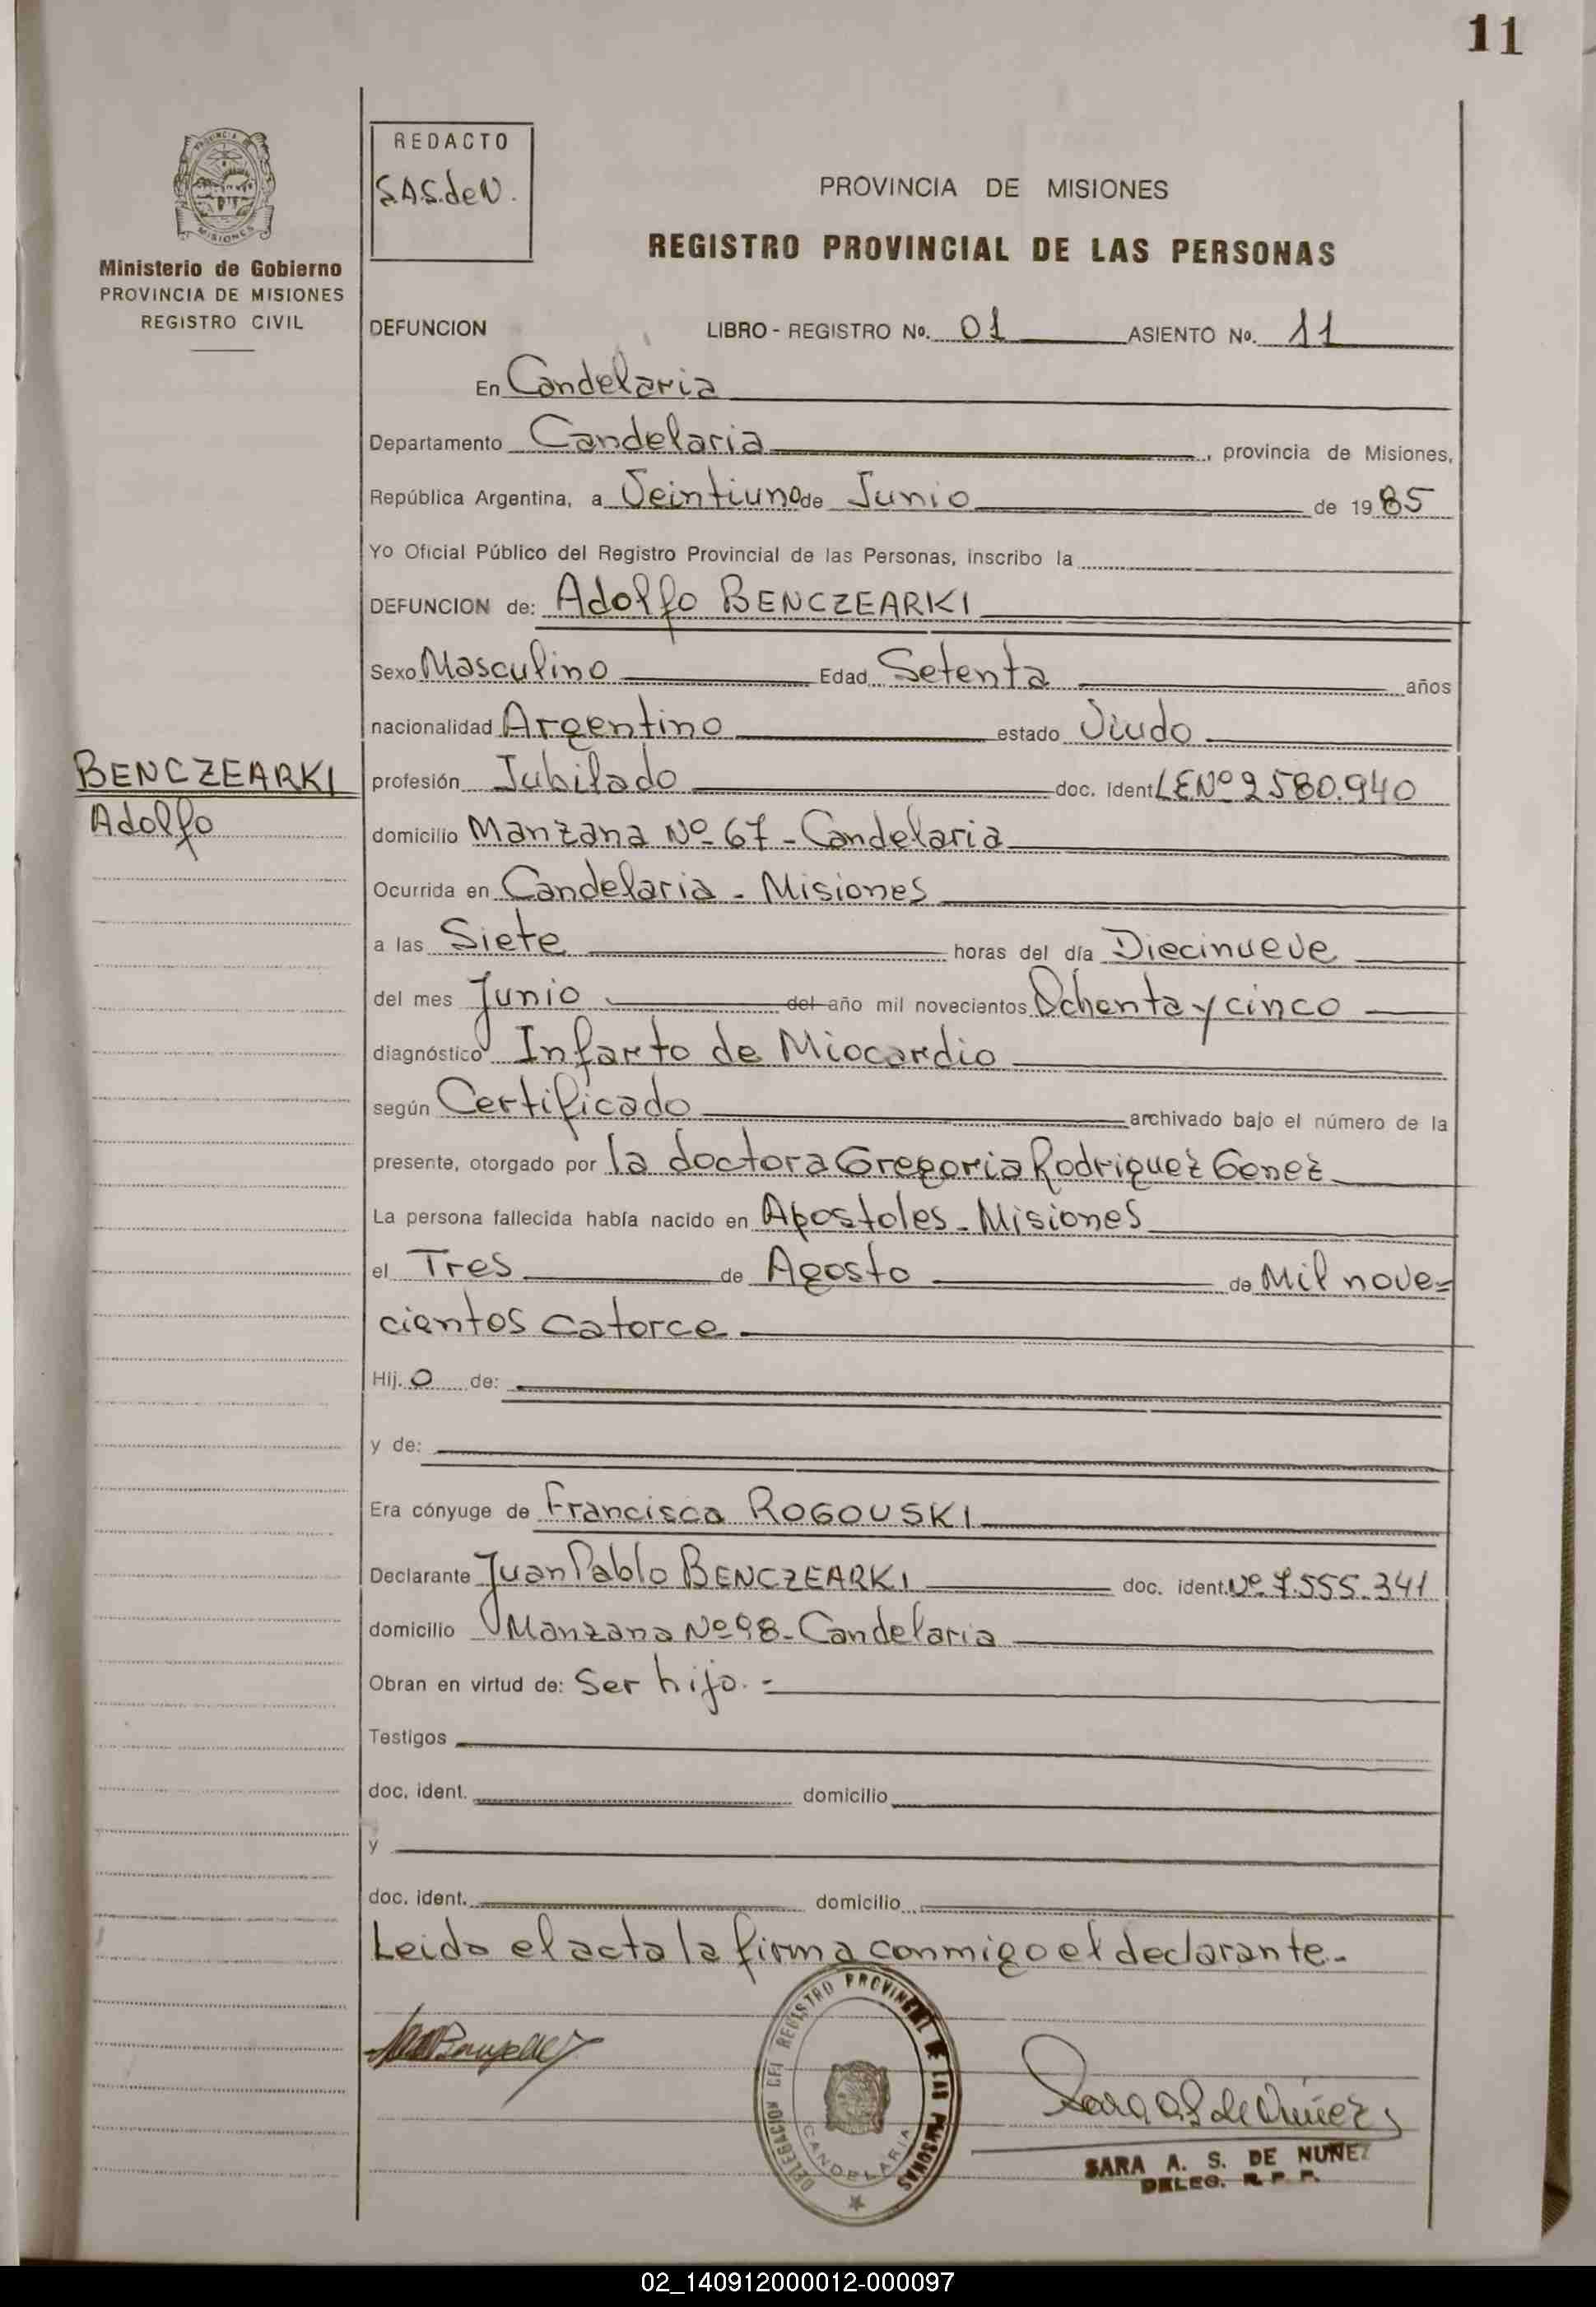 11
PROVINCIA DE
MISIONES
Ministerio de Gobierno
PROVINCIA DE MISIONES
REGISTRO CIVIL
REDACTO
S.A.S.deN.
PROVINCIA DE MISIONES
REGISTRO PROVINCIAL DE LAS PERSONAS
DEFUNCION LIBRO - REGISTRO No. 01 ASIENTO No. 11
En Candelaria
Departamento Candelaria, provincia de Misiones,
República Argentina, a Veintiuno de Junio de 1985
Yo Oficial Público del Registro Provincial de las Personas, inscribo la
DEFUNCION de: Adolfo BENCZEARKI
Sexo Masculino Edad Setenta años
nacionalidad Argentino estado Viudo
BENCZEARKI
Adolfo
profesión Jubilado doc. ident. LENº 2580.940
domicilio Manzana Nº 67 - Candelaria
Ocurrida en Candelaria - Misiones
a las Siete horas del día Diecinueve
del mes Junio del año mil novecientos Ochenta y cinco
diagnóstico Infarto de Miocardio
según Certificado archivado bajo el número de la
presente, otorgado por la doctora Gregoria Rodriguez Gonez
La persona fallecida había nacido en Apostoles - Misiones
el Tres de Agosto de Mil nove=
cientos catorce
Hij.o de:
y de:
Era cónyuge de Francisca ROGOUSKI
Declarante Juan Pablo BENCZEARKI doc. ident. Nº 7.555.341
domicilio Manzana Nº 98 - Candelaria
Obran en virtud de: Ser hijo. =
Testigos
doc. ident. domicilio
y
doc. ident. domicilio
Leida el acta la firma conmigo el declarante.-
DELEGACION DEL REGISTRO PROVINCIAL DE LAS PERSONAS
CANDELARIA
Sara A S de Nuñez
SARA A. S. DE NUÑEZ
DELEG. R. P. P.
02_140912000012-000097